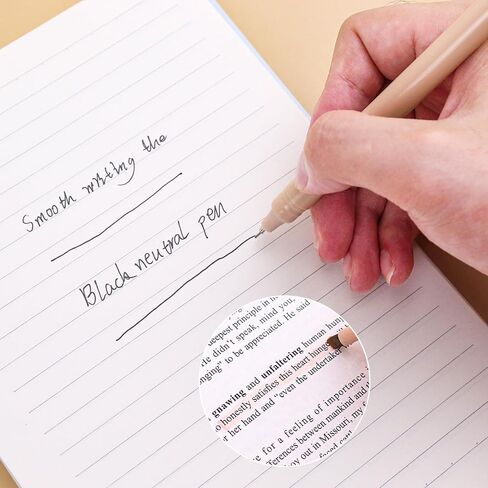 Smooth writing the
Black neutral pen
deepest principle in
He didn't speak, mind you,
onging" to be appreciated. He said
gnawing and unfaltering human hung
o honestly satisfies this heart hunger
r her hand and "even the undertaker
e for a feeling of importance
ferences between mankind and
y out in Missouri, my
faced cattle